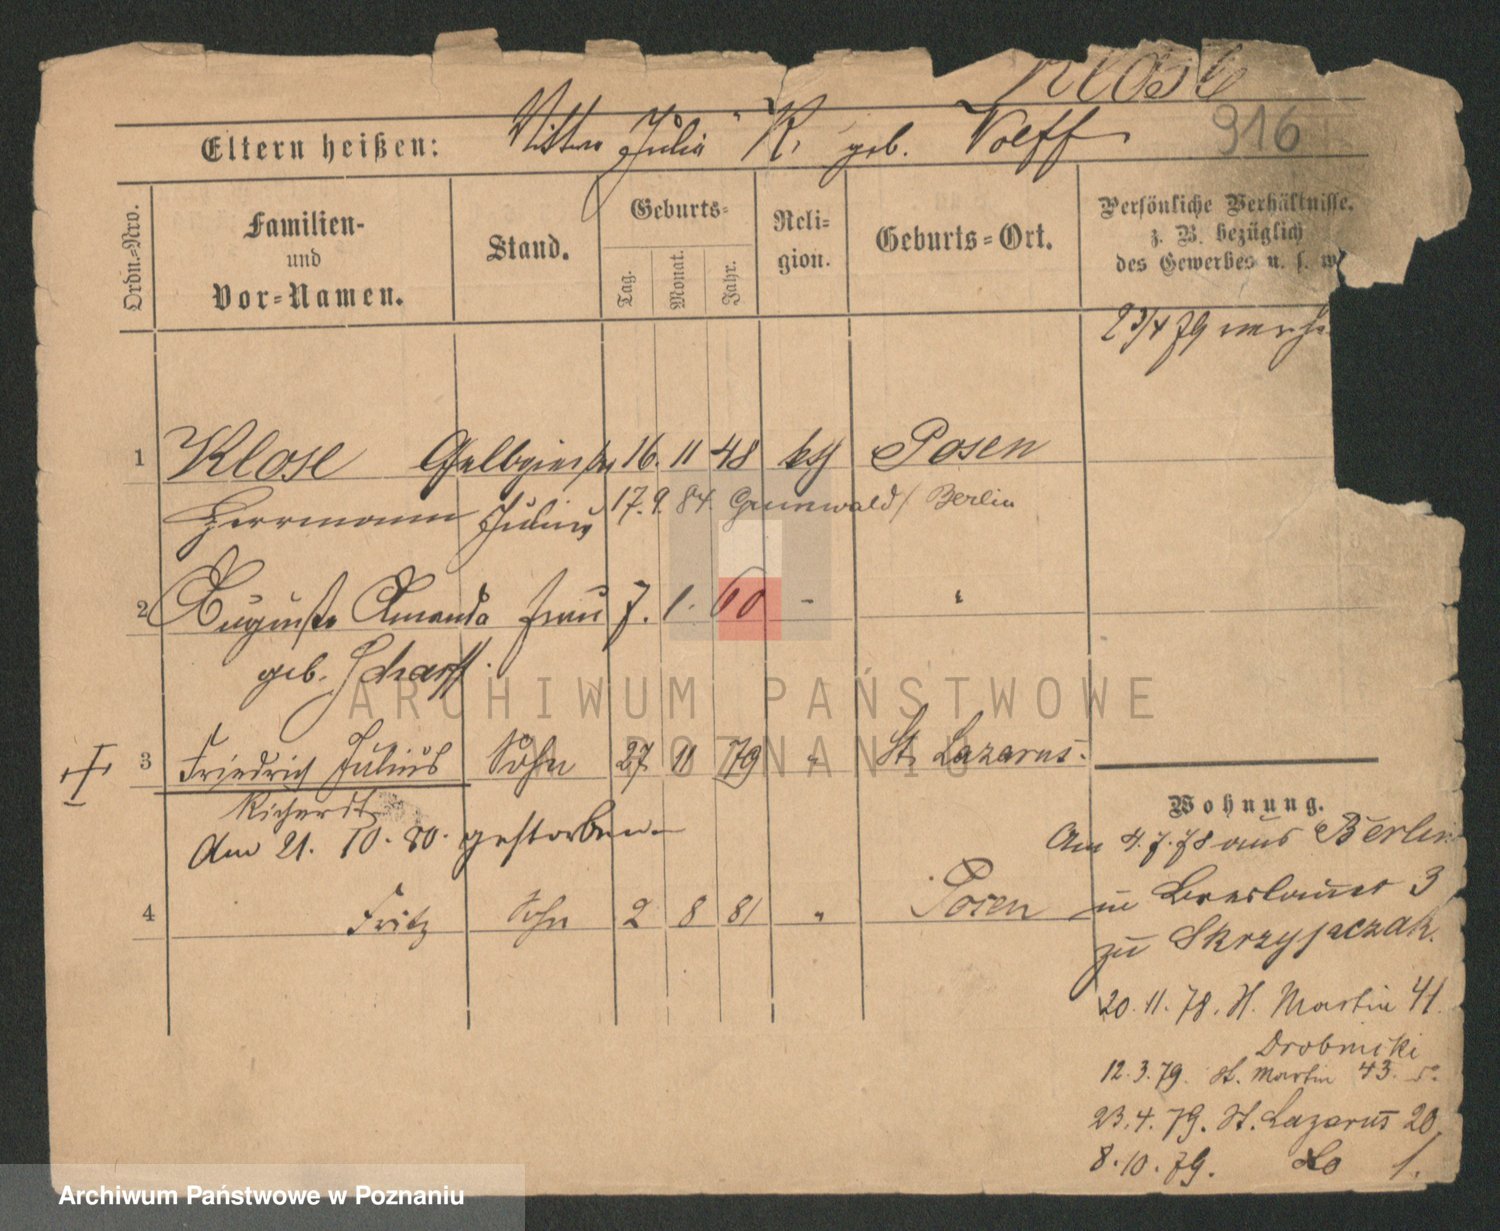 Klose
916
Eltern heißen: Julia K. geb. Wolff
Ordn.-Nro.
Familien-
und
Vor-Namen.
Stand.
Geburts-
Tag.
Monat.
Jahr.
Reli-
gion.
Geburts-Ort.
Persönliche Verhältnisse.
z. B. bezüglich
des Gewerbes u. s. w.
23/4 79
1 Klose Gelbgießer 16. 11 48 Posen
Herrmann Julius 17. 9. 84. Grunewald / Berlin
2 Auguste Amanda Frau 7. 1. 60 - "
geb. Scharff.
3 Friedrich Julius Sohn 27 11 79 " St. Lazarus.
Richardt
Am 21. 10. 80. gestorben.
4 Fritz Sohn 2 8 81 " Posen
Wohnung.
Am 4. 7. 78 aus Berlin
in Breslauer 3
zu Skrzypczak.
20. 11. 78. St. Martin 41.
Drobnicki
12. 3. 79. St. Martin 43.
23. 4. 79. St. Lazarus 20.
8. 10. 79. do 1.
ARCHIWUM PAŃSTWOWE
W POZNANIU
Archiwum Państwowe w Poznaniu